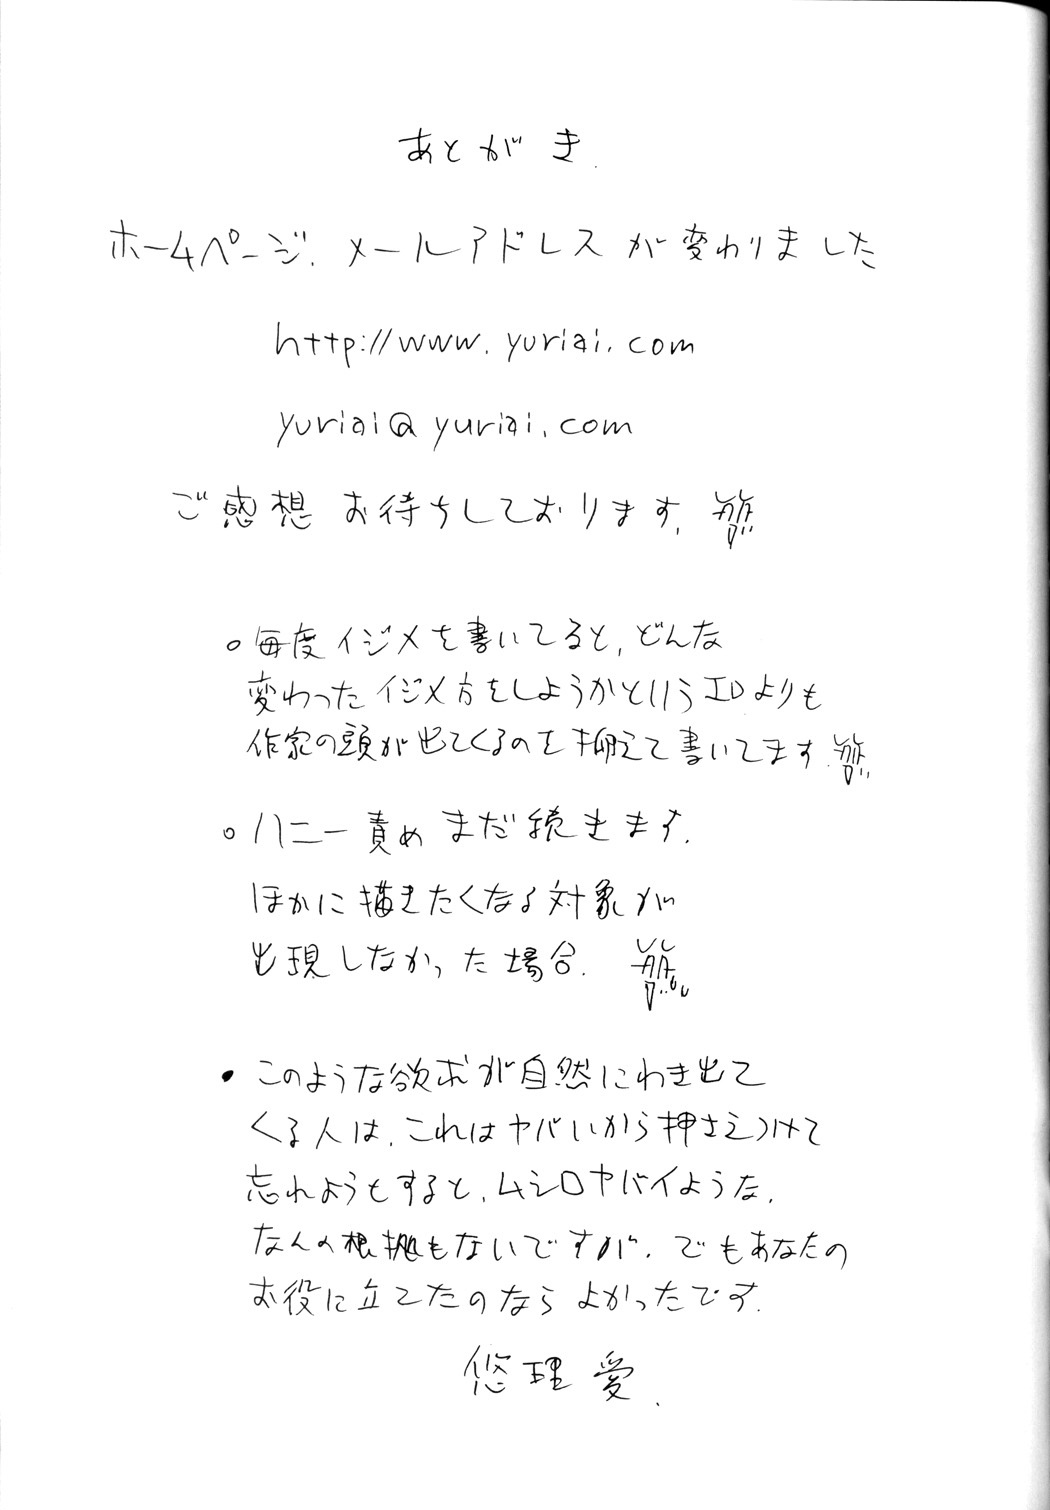 あとがき.
ホームページ. メールアドレスが変わりました
http://www.yuriai.com
yuriai@yuriai.com
ご感想お待ちしております.
○毎度イジメを書いてると, どんな
変わったイジメ方をしようかというエロよりも
作家の頭が出てくるのを抑えて書いてます.
○ハニー責めまだ続きます.
ほかに描きたくなる対象が
出現しなかった場合.
・このような欲求が自然にわき出て
くる人は, これはヤバいから押さえつけて
忘れようとすると, ムシロヤバイような,
なんの根拠もないですが. でもあなたの
お役に立てたのならよかったです.
悠理愛.